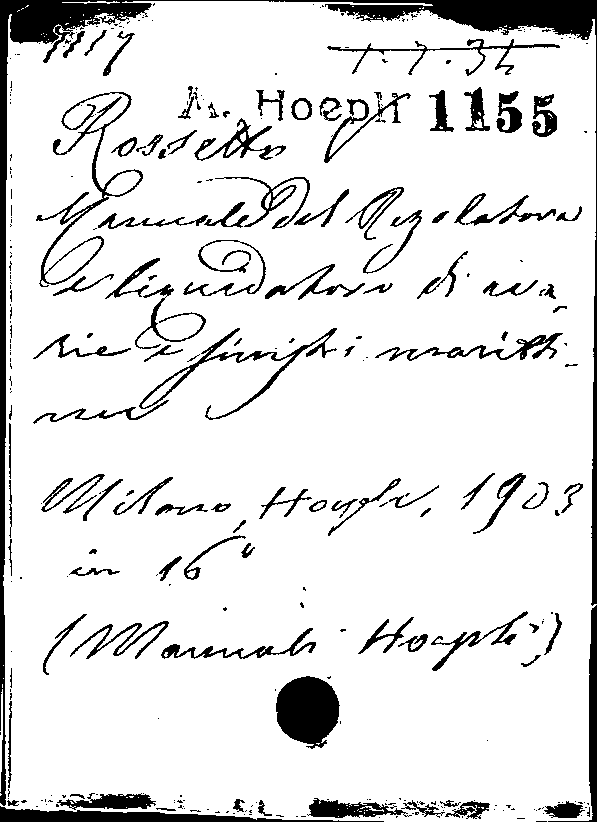 1117 1.7.34
M. Hoepli 1155
Rossetto
Manuale del Regolatore
e liquidatore di ava-
rie e sinistri maritti-
mi
Milano, Hoepli, 1903
in 16°
(Manuali Hoepli)